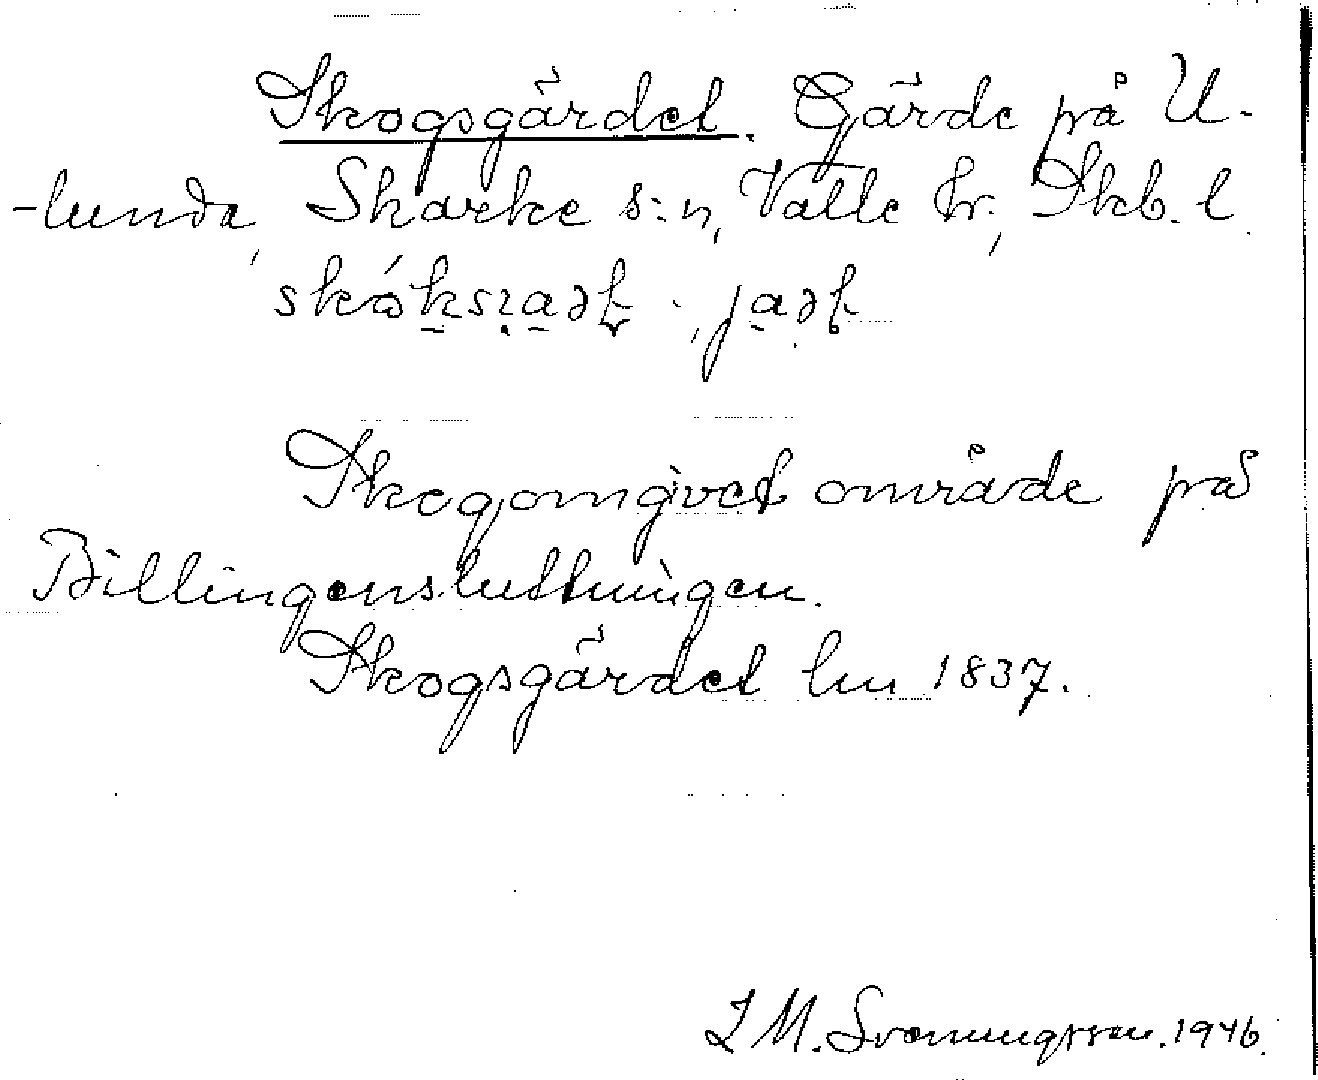 Skogsgärdet. Gärde på U-
-lunda, Skarke s:n, Valle hr., Skb. l.
Skogomgivet område på
Billingensluttningen.
Skogsgärdet lm 1837.
M. Svenungsson. 1946.